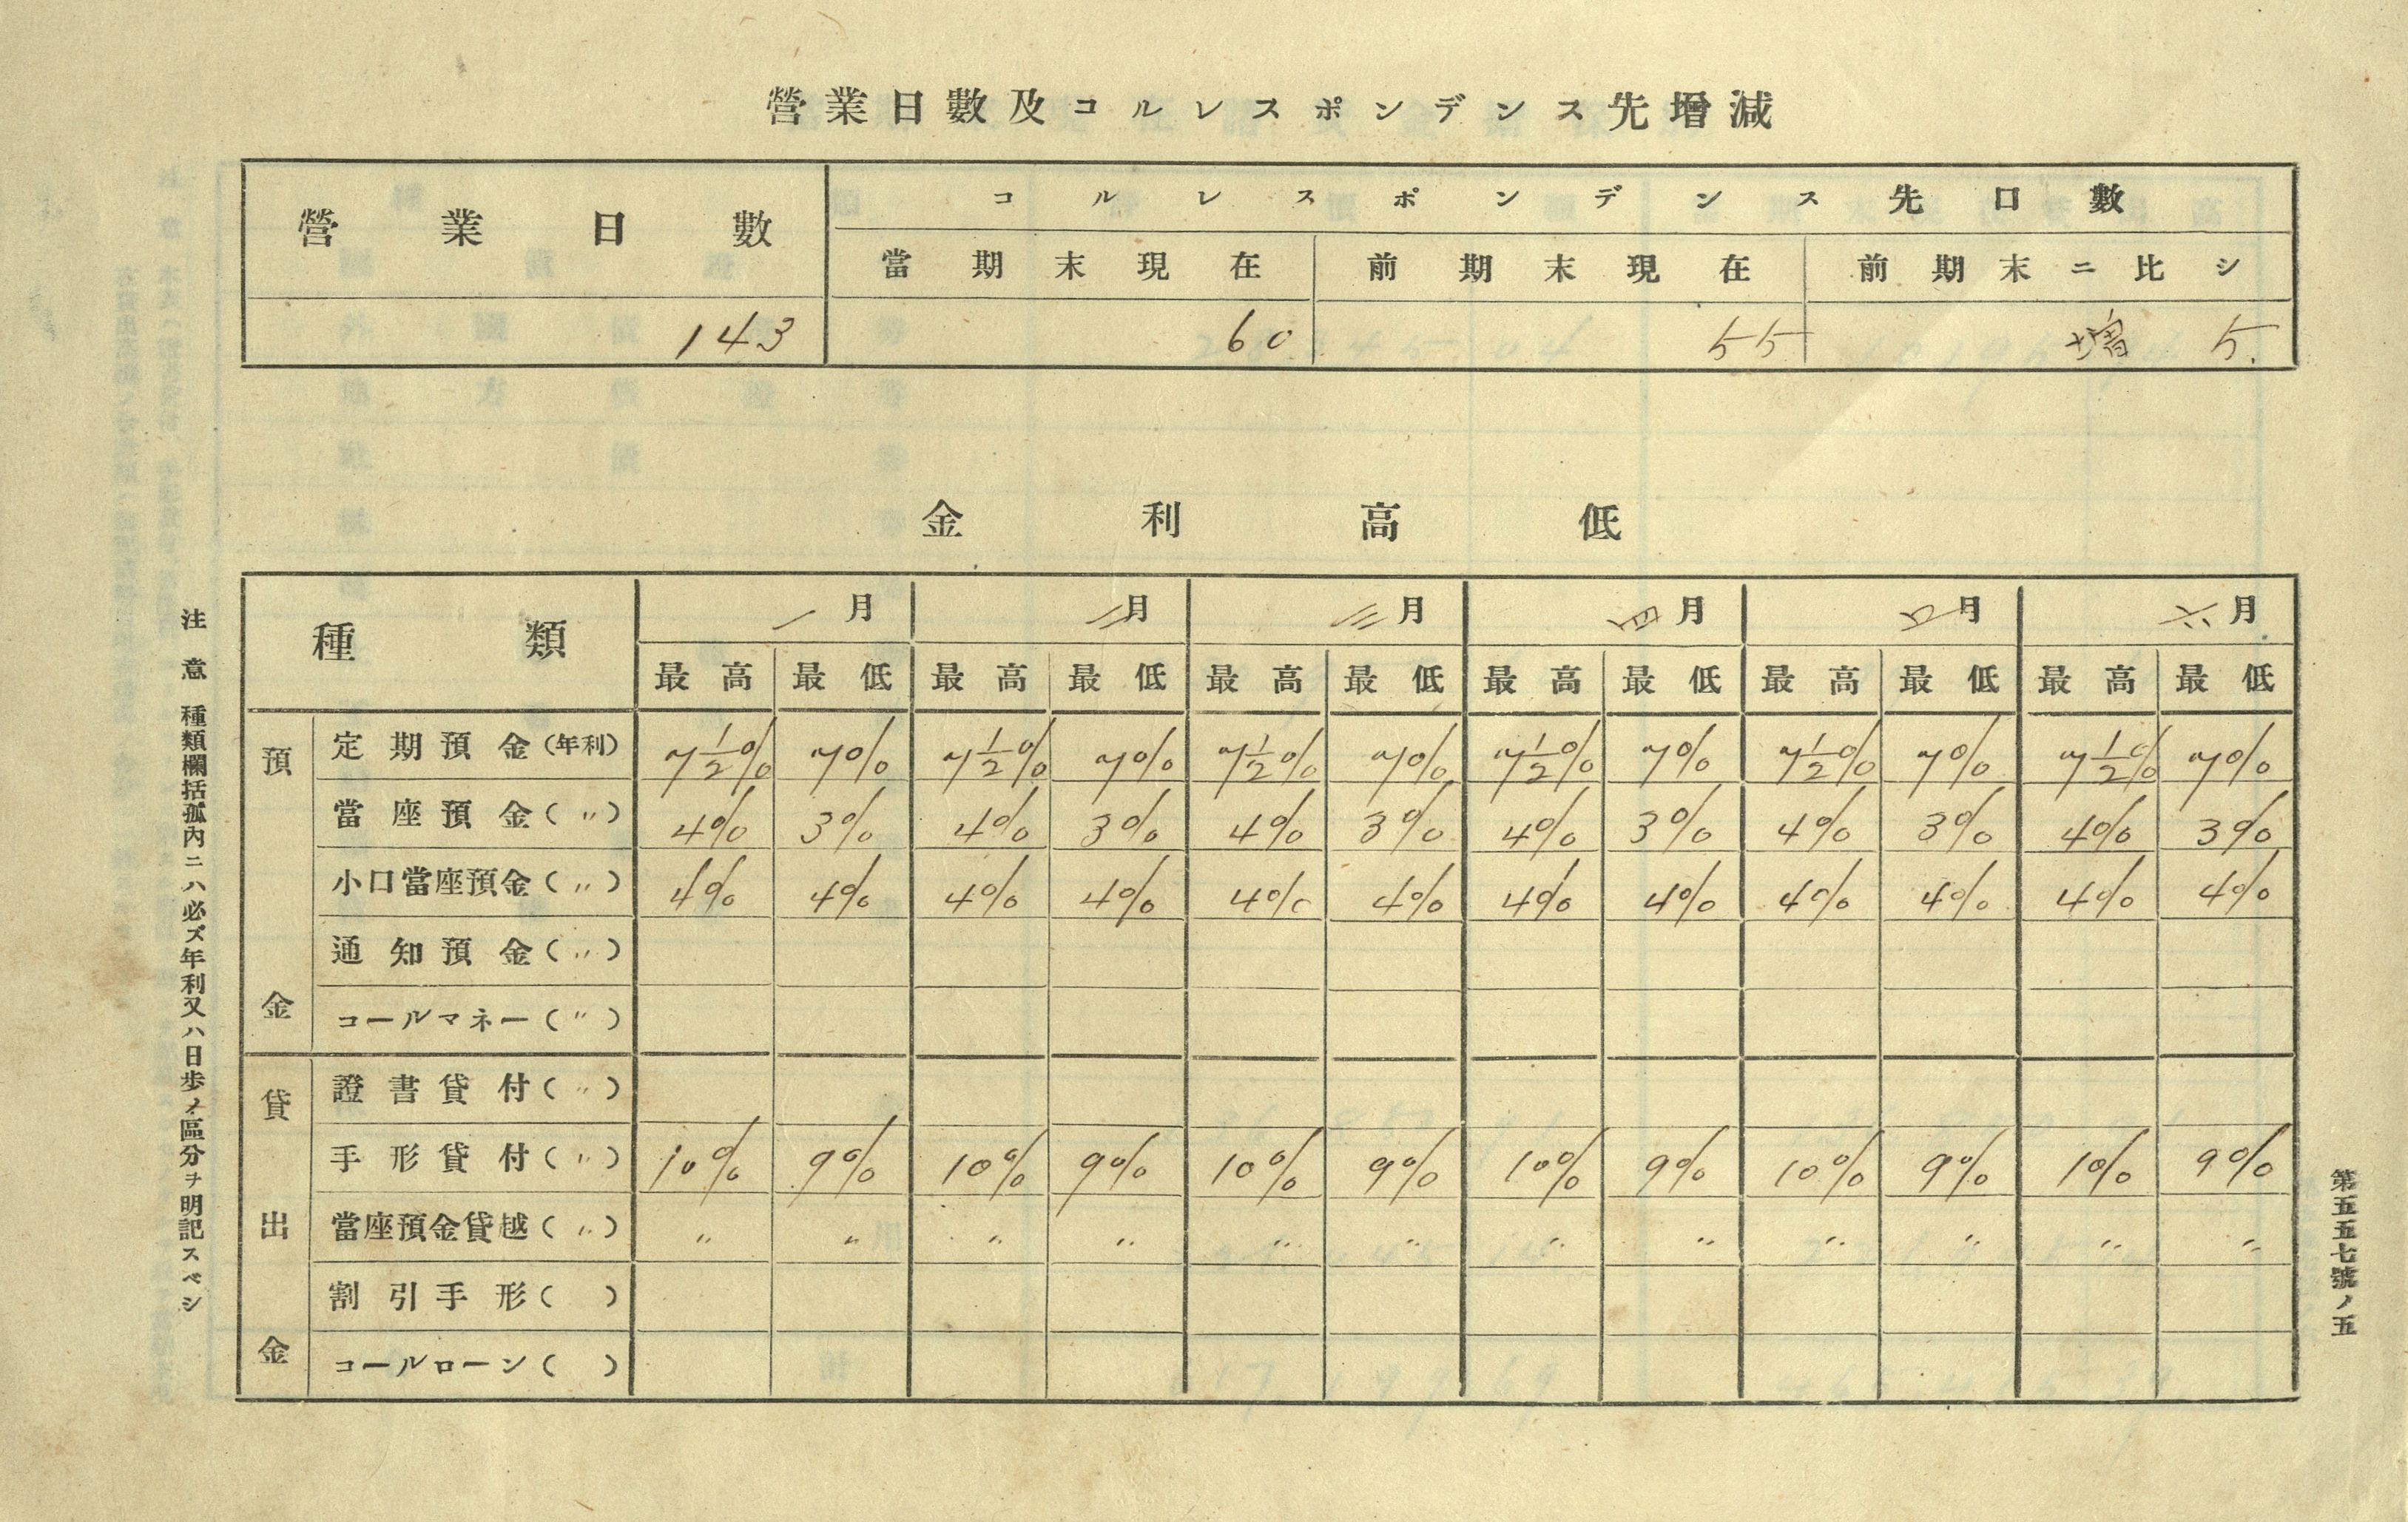 營業日數及コルレスポンデンス先增減
營業日數 コルレスポンデンス先口數
當期末現在 前期末現在 前期末ニ比シ
143 60 55 增 5.
金利高低
種類 一月 二月 三月 四月 五月 六月
最高 最低 最高 最低 最高 最低 最高 最低 最高 最低 最高 最低
預金
定期預金(年利) 7½% 7% 7½% 7% 7½% 7% 7½% 7% 7½% 7% 7½% 7%
當座預金(〃) 4% 3% 4% 3% 4% 3% 4% 3% 4% 3% 4% 3%
小口當座預金(〃) 4% 4% 4% 4% 4% 4% 4% 4% 4% 4% 4% 4%
通知預金(〃)
コールマネー(〃)
貸出金
證書貸付(〃)
手形貸付(〃) 10% 9% 10% 9% 10% 9% 10% 9% 10% 9% 10% 9%
當座預金貸越(〃) 〃 〃 〃 〃 〃 〃 〃 〃 〃 〃 〃 〃
割引手形( )
コールローン( )
注意 種類欄括孤內ニハ必ズ年利又ハ日步ノ區分ヲ明記スベシ
第五五七號ノ五